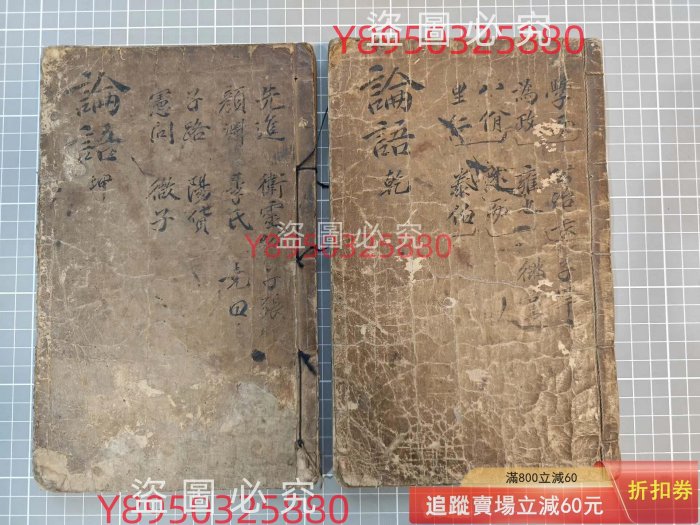 盜圖必究
Y8950325880
論語 乾
學而
為政 雍也
八佾 述而
里仁 泰伯
論語 坤
先進 衛靈 子張
顏淵 季氏 堯曰
子路 陽貨
憲問 微子
盜圖必究
Y8950325880
盜圖必究
Y8950325880
滿800立減60
追蹤賣場立減60元
折扣券